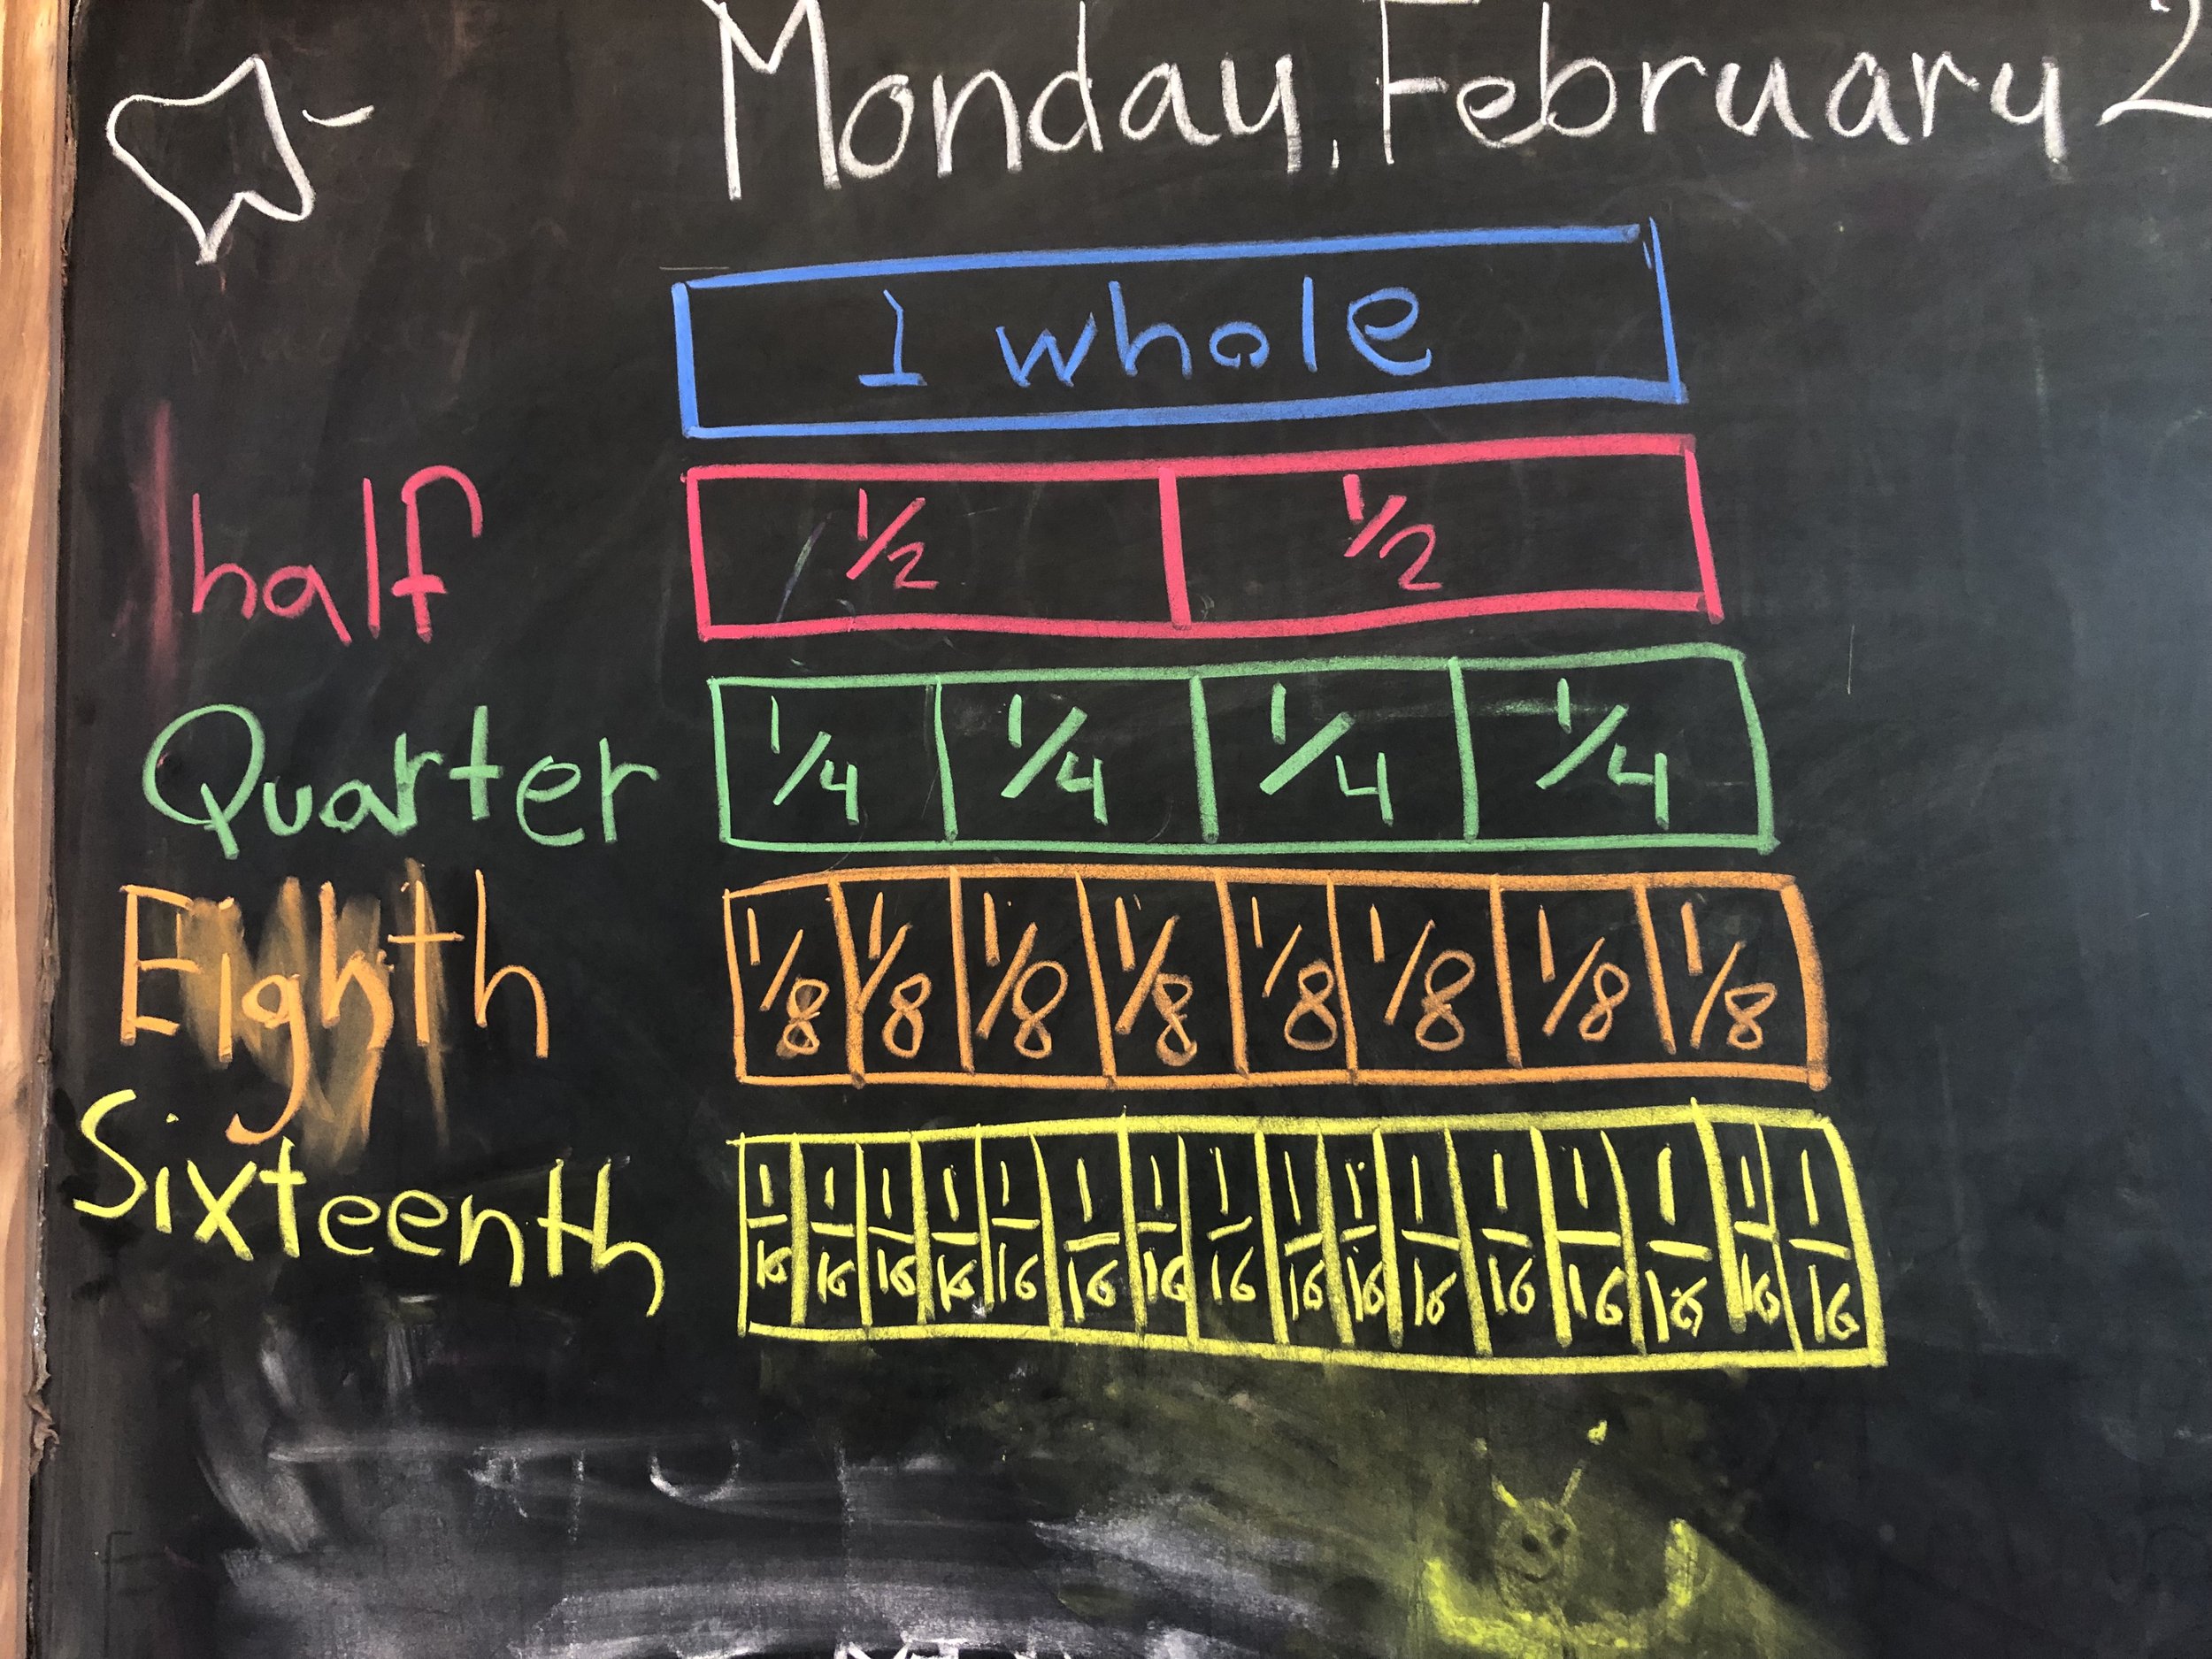 Monday, February 2
1 whole
half 1/2 1/2
Quarter 1/4 1/4 1/4 1/4
Eighth 1/8 1/8 1/8 1/8 1/8 1/8 1/8 1/8
Sixteenth 1/16 1/16 1/16 1/16 1/16 1/16 1/16 1/16 1/16 1/16 1/16 1/16 1/16 1/16 1/16 1/16